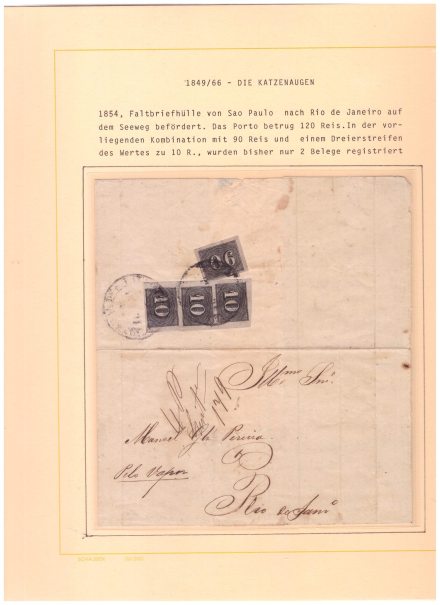 1849/66 - DIE KATZENAUGEN
1854, Faltbriefhülle von Sao Paulo nach Rio de Janeiro auf
dem Seeweg befördert. Das Porto betrug 120 Reis.In der vor-
liegenden Kombination mit 90 Reis und einem Dreierstreifen
des Wertes zu 10 R., wurden bisher nur 2 Belege registriert
90
10 10 10
Illmo Snr.
Manoel Pereira
Pelo Vapor
Rio de Janro